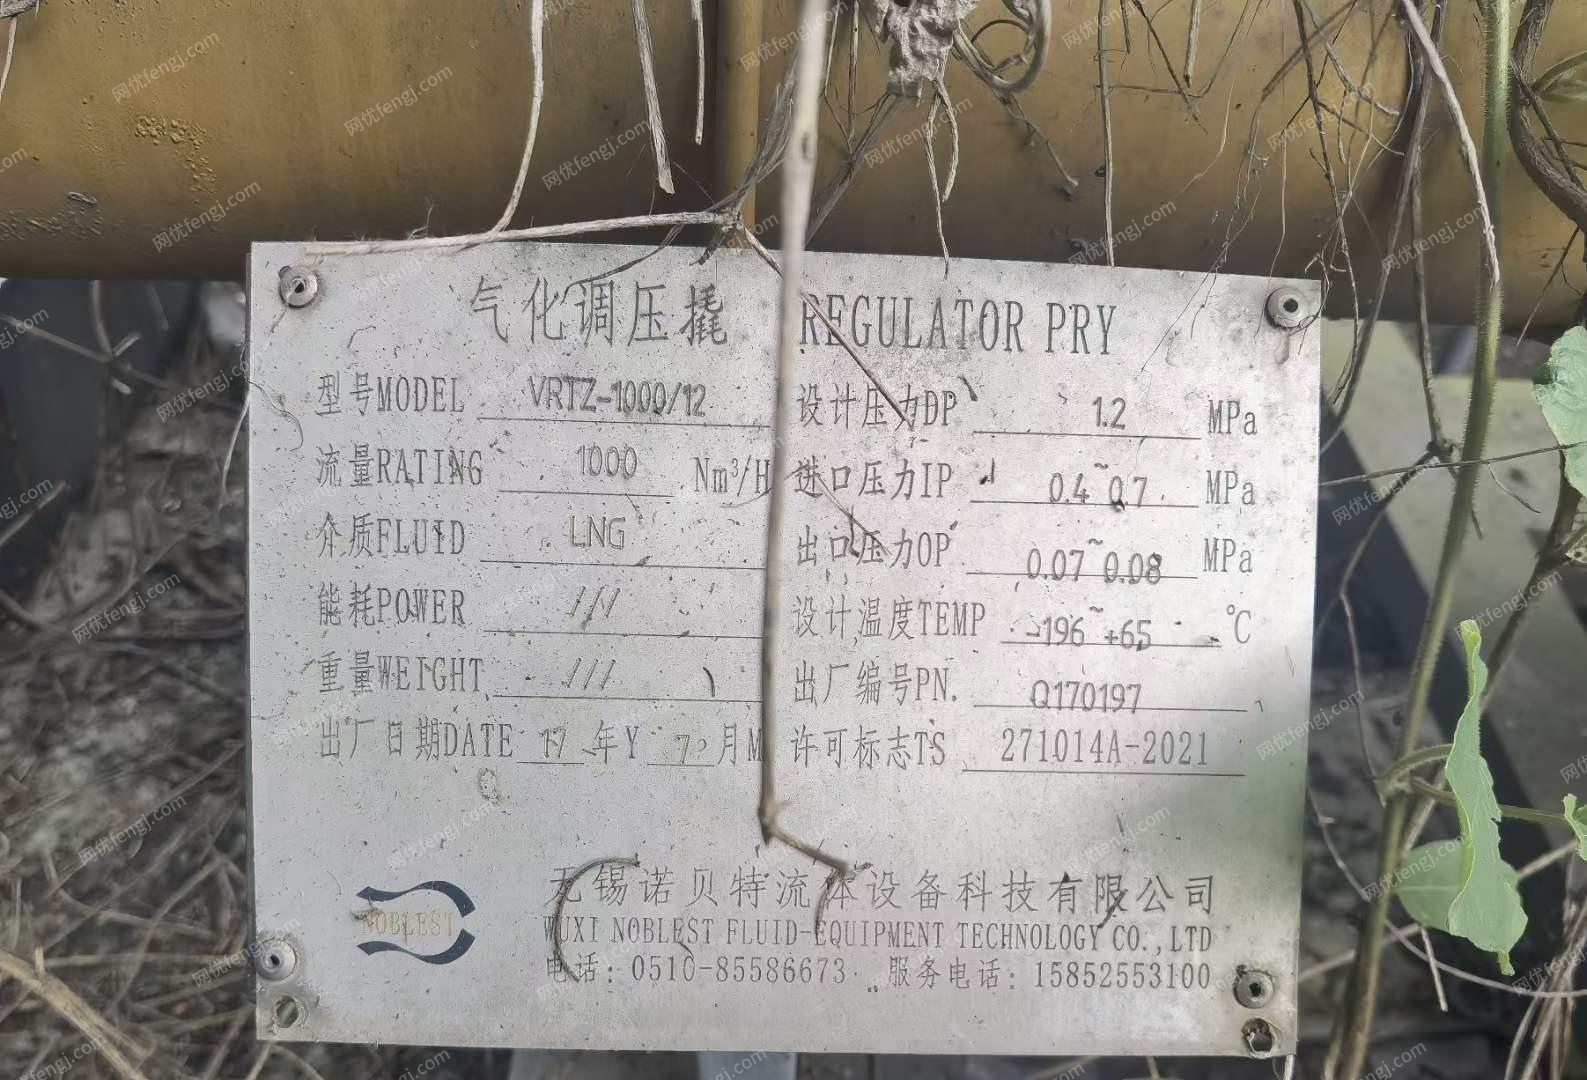 气化调压撬 REGULATOR PRY
型号MODEL VRTZ-1000/12 设计压力DP 1.2 MPa
流量RATING 1000 Nm³/H 进口压力IP 0.4~0.7 MPa
介质FLUID LNG 出口压力OP 0.07~0.08 MPa
能耗POWER /// 设计温度TEMP -196~+65 ℃
重量WEIGHT /// 出厂编号PN. Q170197
出厂日期DATE 17 年Y 月M 许可标志TS 271014A-2021
NOBLEST
无锡诺贝特流体设备科技有限公司
WUXI NOBLEST FLUID-EQUIPMENT TECHNOLOGY CO.,LTD
电话: 0510-85586673 服务电话: 15852553100
网优fengj.com